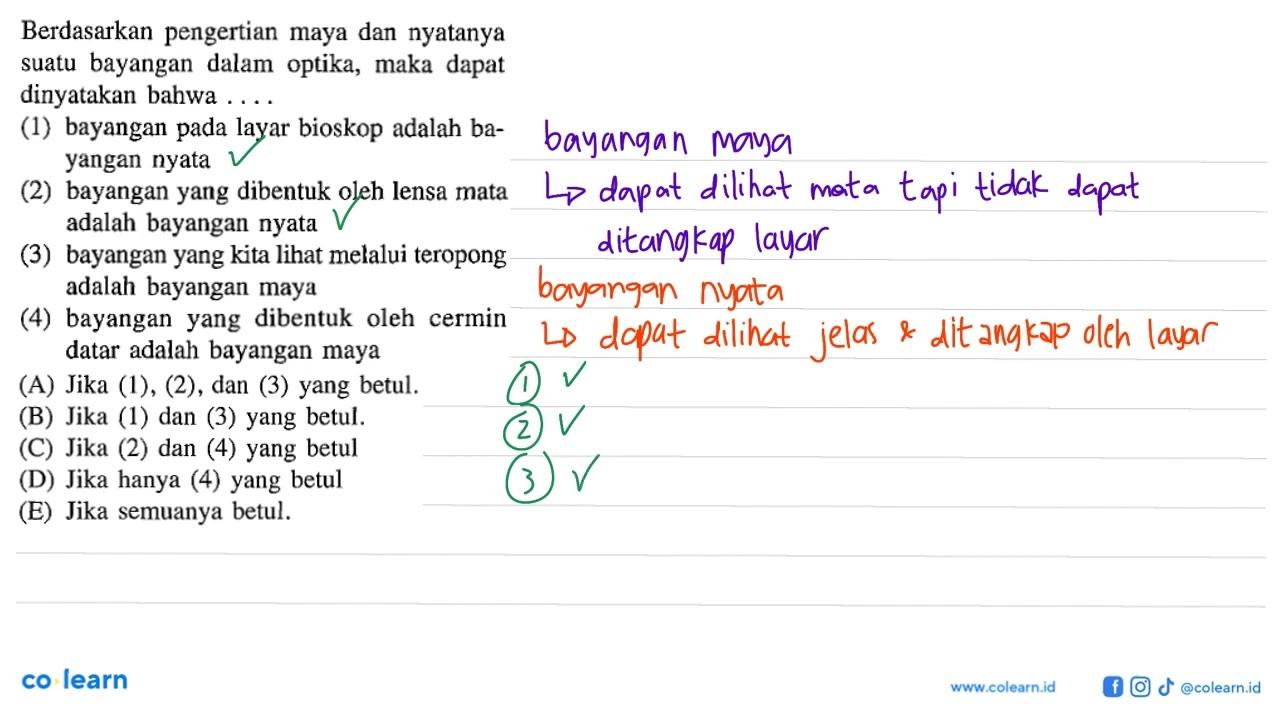 Berdasarkan pengertian maya dan nyatanya
suatu bayangan dalam optika, maka dapat
dinyatakan bahwa . . . .
(1) bayangan pada layar bioskop adalah ba-
yangan nyata ✓
(2) bayangan yang dibentuk oleh lensa mata
adalah bayangan nyata ✓
(3) bayangan yang kita lihat melalui teropong
adalah bayangan maya
(4) bayangan yang dibentuk oleh cermin
datar adalah bayangan maya
(A) Jika (1), (2), dan (3) yang betul.
(B) Jika (1) dan (3) yang betul.
(C) Jika (2) dan (4) yang betul
(D) Jika hanya (4) yang betul
(E) Jika semuanya betul.
bayangan maya
↳ dapat dilihat mata tapi tidak dapat
ditangkap layar
bayangan nyata
↳ dapat dilihat jelas & ditangkap oleh layar
1 ✓
2 ✓
3 ✓
co learn
www.colearn.id
@colearn.id